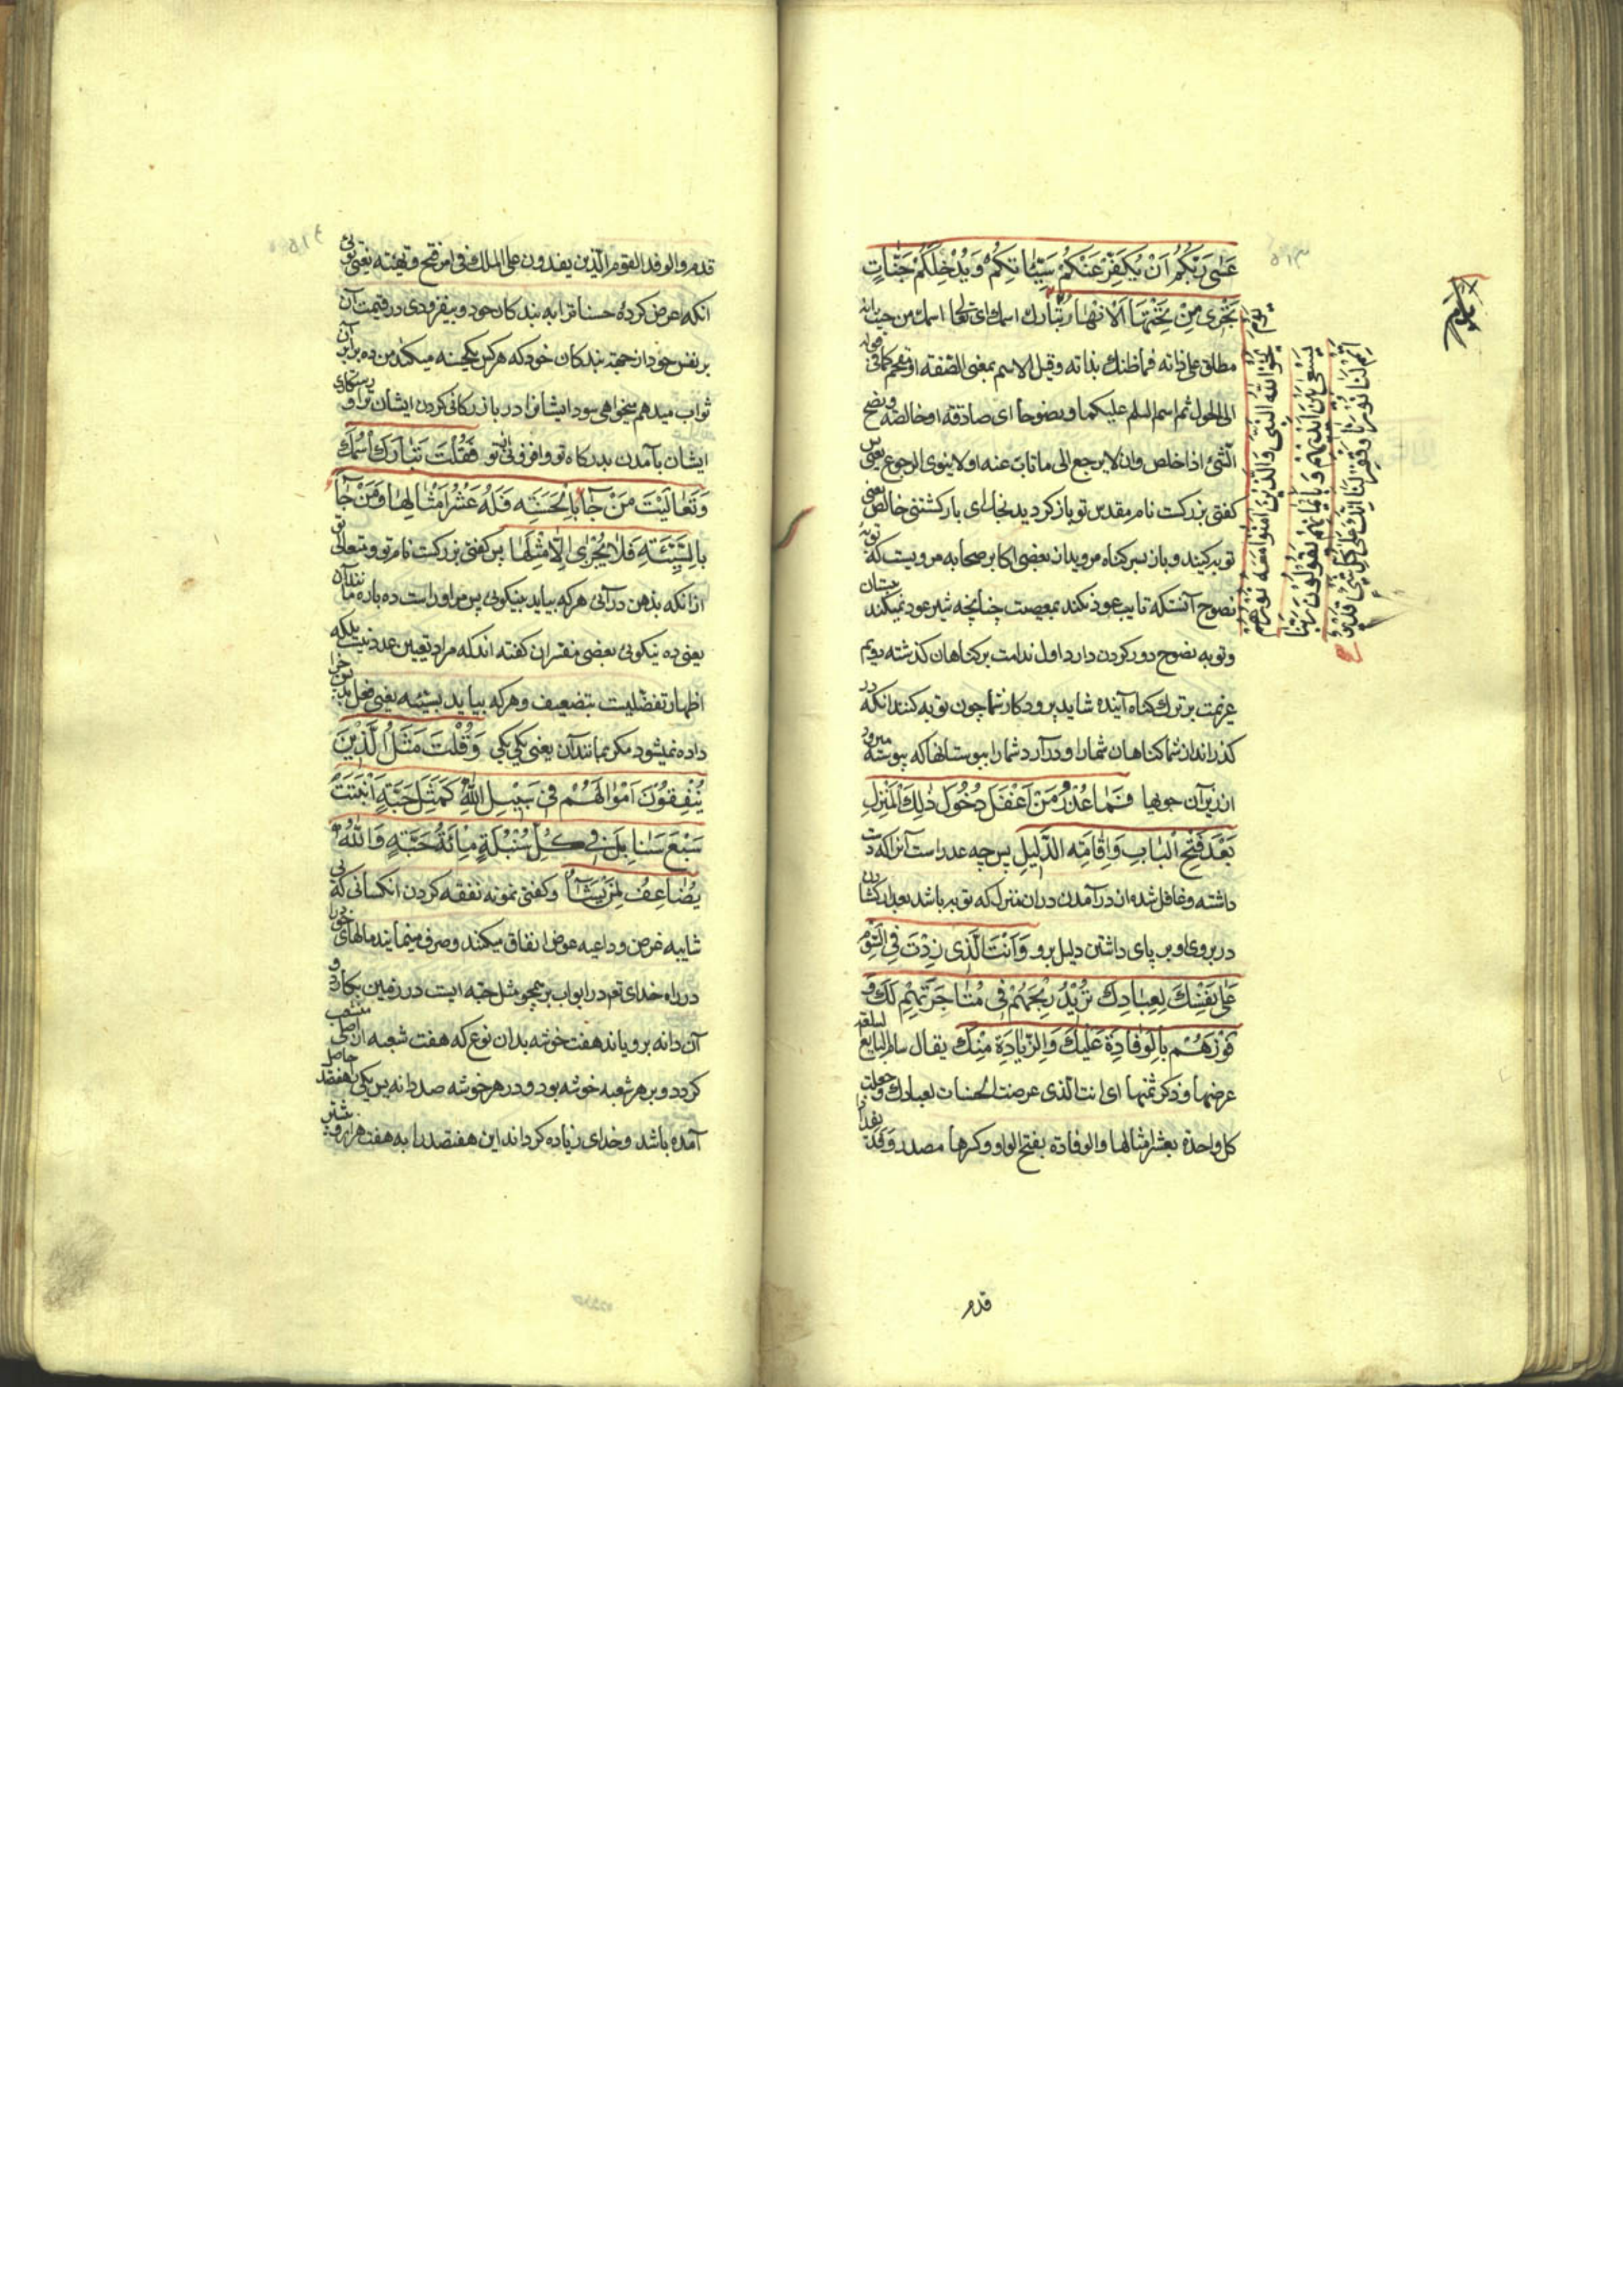 عَسٰی رَبُّکُمْ اَنْ یُکَفِّرَ عَنْکُمْ سَیِّئٰاتِکُمْ وَیُدْخِلَکُمْ جَنّٰاتٍ
تَجْرٖی مِنْ تَحْتِهَا الْاَنْهٰارُ تبارك اسمك ای تعالی اسمك من حیث انه
مطلق علی ذاته فماظنك بذاته وقیل الاسم بمعنی الصفة او مقحم کما فی قوله
الی الحول ثم اسم السلم علیکما ونصوحا ای صادقة او خالصة ونصح
الشئ اذا خلص وان لا یرجع الی ما تاب عنه او لا ینوی الرجوع یعنی پس
کفتی بزرکست نام مقدس تو باز کردید بخدای بازکشتنی خالص یعنی
توبه کنید و باز بسر کناه مروید از بعضی اکابر صحابه مرویست که توبهٔ
نصوح آنستکه تایب عود نکند بمعصیت چنانچه شیر عود نمیکند بپستان
وتوبه نصوح دور کردن دارد اول ندامت برکناهان کذشته دویم
عزیمت بر ترك کناه آینده شاید پرودکار شما چون توبه کنند انکه در
کذراند از شما کناهان شمارا و درآرد شما را ببوستانها که پیوسته میرود
از زیر آن جویها فَمٰا عُذْرُ مَنْ اَغْفَلَ دُخُولَ ذٰلِكَ الْمَنْزِلِ
بَعْدَ فَتْحِ الْبٰابِ وَاِقٰامَةِ الدَّلیٖلِ پس چه عذر است آنرا که دست
داشته وغافل شده از درآمدن در ان منزل که توبه باشد بعد از کشادن
در بروی او بر پای داشتن دلیل برو وَاَنْتَ الَّذٖی زِدْتَ فِی السَّوْمِ
عَلٰی نَفْسِكَ لِعِبٰادِكَ تُرٖیدُ رِبْحَهُمْ فٖی مُتٰاجَرَتِهِمْ لَكَ وَ
فَوْزَهُمْ بِالْوِفٰادَةِ عَلَیْكَ وَالزِّیٰادَةِ مِنْكَ یقال سام البایع السلعة
عرضها وذکر ثمنها ای انت الذی عرضت الحسنات لعبادك وجعلت
کل واحدة بعشر امثالها والوفادة بفتح الواو وکسرها مصدر وفد
یَوْمَ لٰا
یُخْزِی اللّٰهُ النَّبِیَّ وَالَّذٖینَ اٰمَنُوا مَعَهُ نُورُهُمْ
یَسْعٰی بَیْنَ اَیْدٖیهِمْ وَبِاَیْمٰانِهِمْ یَقُولُونَ رَبَّنٰا
اَتْمِمْ لَنٰا نُورَنٰا وَاغْفِرْ لَنٰا اِنَّكَ عَلٰی کُلِّ شَیْءٍ قَدٖیرٌ
قدم
قدم والوفد القوم الذین یفدون علی الملك فی امر فتح وتهنئة یعنی توئی
انکه عرض کردهٔ حسنات را به بندکان خود و بیفزودی در قیمت آن
بر نفس خود از جهة بندکان خود که هر کس یکحسنه میکند من ده برابر آن
ثواب میدهم میخواهی سود ایشانرا در بازرکانی کردن ایشان ترا و رستکاری
ایشان بآمدن بدرکاه تو و افزونی تو فَقُلْتَ تَبٰارَكَ اسْمُكَ
وَتَعٰالَیْتَ مَنْ جٰآءَ بِالْحَسَنَةِ فَلَهُ عَشْرُ اَمْثٰالِهٰا وَمَنْ جٰآءَ
بِالسَّیِّئَةِ فَلٰا یُجْزٰی اِلّٰا مِثْلَهٰا پس کفتی بزرکست نام تو ومتعالی تو
ازانکه بذهن درآئی هرکه بیاید بنیکوئی پس مر اوراست ده باره مانند آن
یعنی ده نیکوئی بعضی مفسران کفته اند که مراد تعیین عدد نیست بلکه
اظهار تفضلیست بتضعیف و هرکه بیاید بسیئه یعنی فعل بد پس جزا
داده نمیشود مکر بمانند آن یعنی یکی بیکی وَقُلْتَ مَثَلُ الَّذٖینَ
یُنْفِقُونَ اَمْوٰالَهُمْ فٖی سَبٖیلِ اللّٰهِ کَمَثَلِ حَبَّةٍ اَنْبَتَتْ
سَبْعَ سَنٰابِلَ فٖی کُلِّ سُنْبُلَةٍ مِائَةُ حَبَّةٍ وَاللّٰهُ
یُضٰاعِفُ لِمَنْ یَشٰآءُ وکفتی نمونه نفقه کردن انکسانی که بی
شایبه غرض وداعیه عوض انفاق میکنند وصرف مینمایند مالهای خود را
در راه خدای تعم در ابواب بر همچو مثل حبه ایست در زمین بکارد و
آن دانه برویاند هفت خوشه بدان نوع که هفت شعبه از اصلی منشعب
کردد و بر هر شعبه خوشه بود و در هر خوشه صد دانه پس یکی هفتصد حاصل
آمده باشد و خدای زیاده کرداند این هفتصد را به هفت هزار و بیشتر